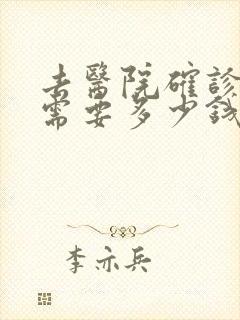 去醫院確診
需要多少錢
李亦兵